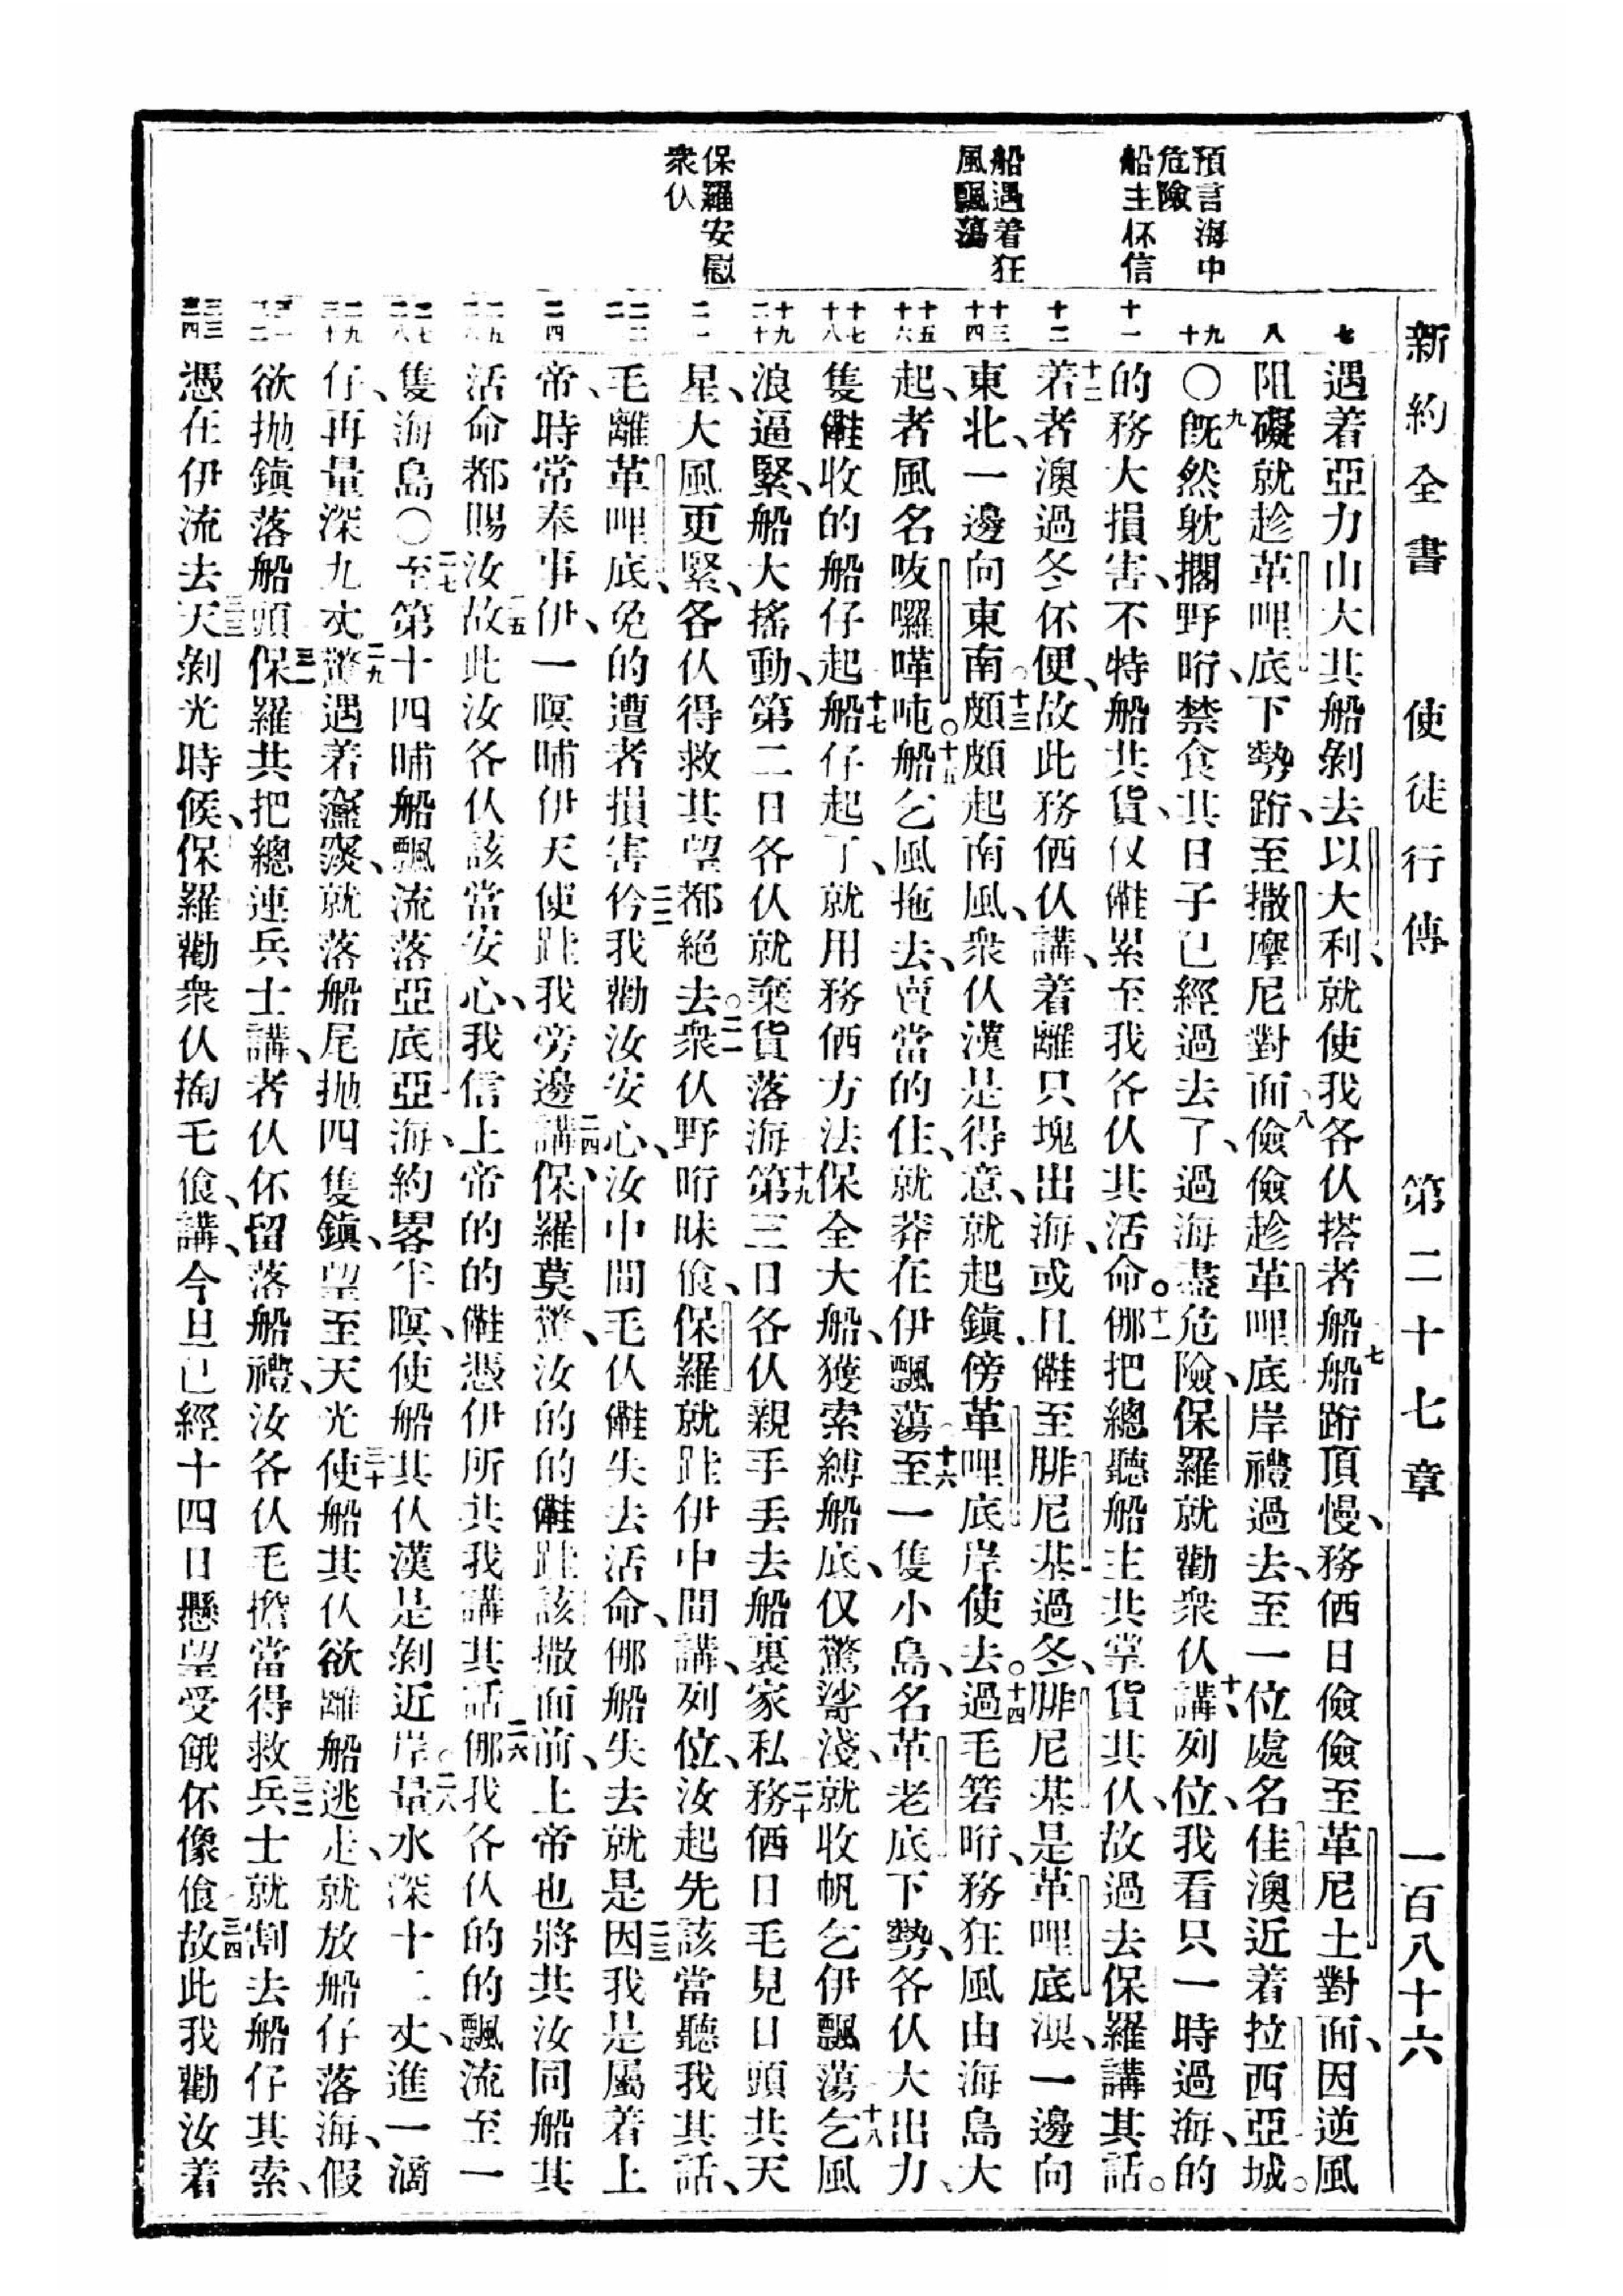 新約全書　使徒行傳　第二十七章　一百八十六
預言海中
危險
船主伓信
船遇着狂
風飄蕩
保羅安慰
衆仈
遇着亞力山大其船剝去以大利、就使我各仈搭者船七船跨頂慢、務侕日儉儉至革尼土對面、因逆風
阻礙就趁革哩底下勢跨、至撒摩尼對面八儉儉趁革哩底岸禮過去、至一位處名佳澳近着拉西亞城。
〇九旣然躭擱野晌、禁食其日子已經過去了、過海盡危險、保羅就勸衆仈講十、列位、我看只一時過海、的
的務大損害、不特船共貨、仅㒕累至我各仈其活命。十一䏾把總聽船主共掌貨其仈、故過去保羅講其話。
十二若者澳過冬伓便、故此務侕仈講、着離只塊出海、或且㒕至腓尼基過冬、腓尼基是革哩底澳、一邊向
東北、一邊向東南。十三頗頗起南風、衆仈漢是得意、就起鎭、傍革哩底岸使去。十四過毛箬晌、務狂風由海島大
起、者風名吱囉嘩吨。十五船乞風拖去、賣當的住、就莽在伊飄蕩十六至一隻小島、名革老底下勢、各仈大出力、
隻㒕收的船仔起十七船仔起了、就用務侕方法保全大船、獲索縛船底、仅驚㴙淺、就收帆乞伊飄蕩十八乞風
浪逼緊、船大搖動、第二日各仈就棄貨落海十九第三日各仈親手丟去船裏家私二十務侕日毛見日頭共天
星、大風更緊、各仈得救其望都絕去。二一衆仈野晌昧飧、保羅就跬伊中間講、列位、汝起先該當聽我其話、
毛離革哩底、免的遭者損害二二仱我勸汝安心、汝中間毛仈㒕失去活命、䏾船失去就是二三因我是屬着上
帝、時常奉事伊、一暝晡伊天使跬我旁邊講二四、保羅莫驚、汝的的㒕跬該撒面前、上帝也將共汝同船其
活命都賜汝二五故此汝各仈該當安心、我信上帝的的㒕憑伊所共我講其話二六䏾我各仈的的飄流至一
隻海島〇二七至第十四晡船飄流落亞底亞海、約畧半暝、使船其仈漢是剝近岸。二八量水深十二丈、進一滴
仔、再量深九丈二九驚遇着䆲䆲、就落船尾抛四隻鎭、望至天光三十使船其仈欲離船逃走、就放船仔落海、假
欲抛鎭落船頭三一保羅共把總連兵士講、者仈伓留落船禮、汝各仈毛擔當得救三二兵士就割去船仔其索、
憑在伊流去三三天剝光時候、保羅勸衆仈掏乇飧、講、今旦已經十四日懸望受餓伓像飧三四故此我勸汝着